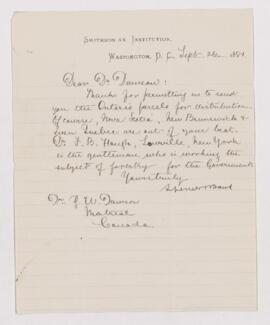 SMITHSONIAN INSTITUTION,
WASHINGTON, D. C. Sept 26 1881
Dear Dr Dawson:
Thanks for permitting us to send
you the Ontario parcels for distribution
Of course, Nova Scotia, New Brunswick &
even Quebec are out of your beat.
Dr. F. B. Hough, Lowville, New York
is the gentleman who is working the
subject of forestry for the Government
Yours truly
Spencer F Baird
Dr. J. W. Dawson
Montreal
Canada